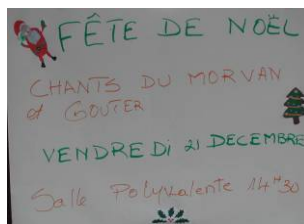 FÊTE DE NOËL
CHANTS DU MORVAN
et GOUTER
VENDREDI 21 DECEMBRE
Salle Polyvalente 14H30